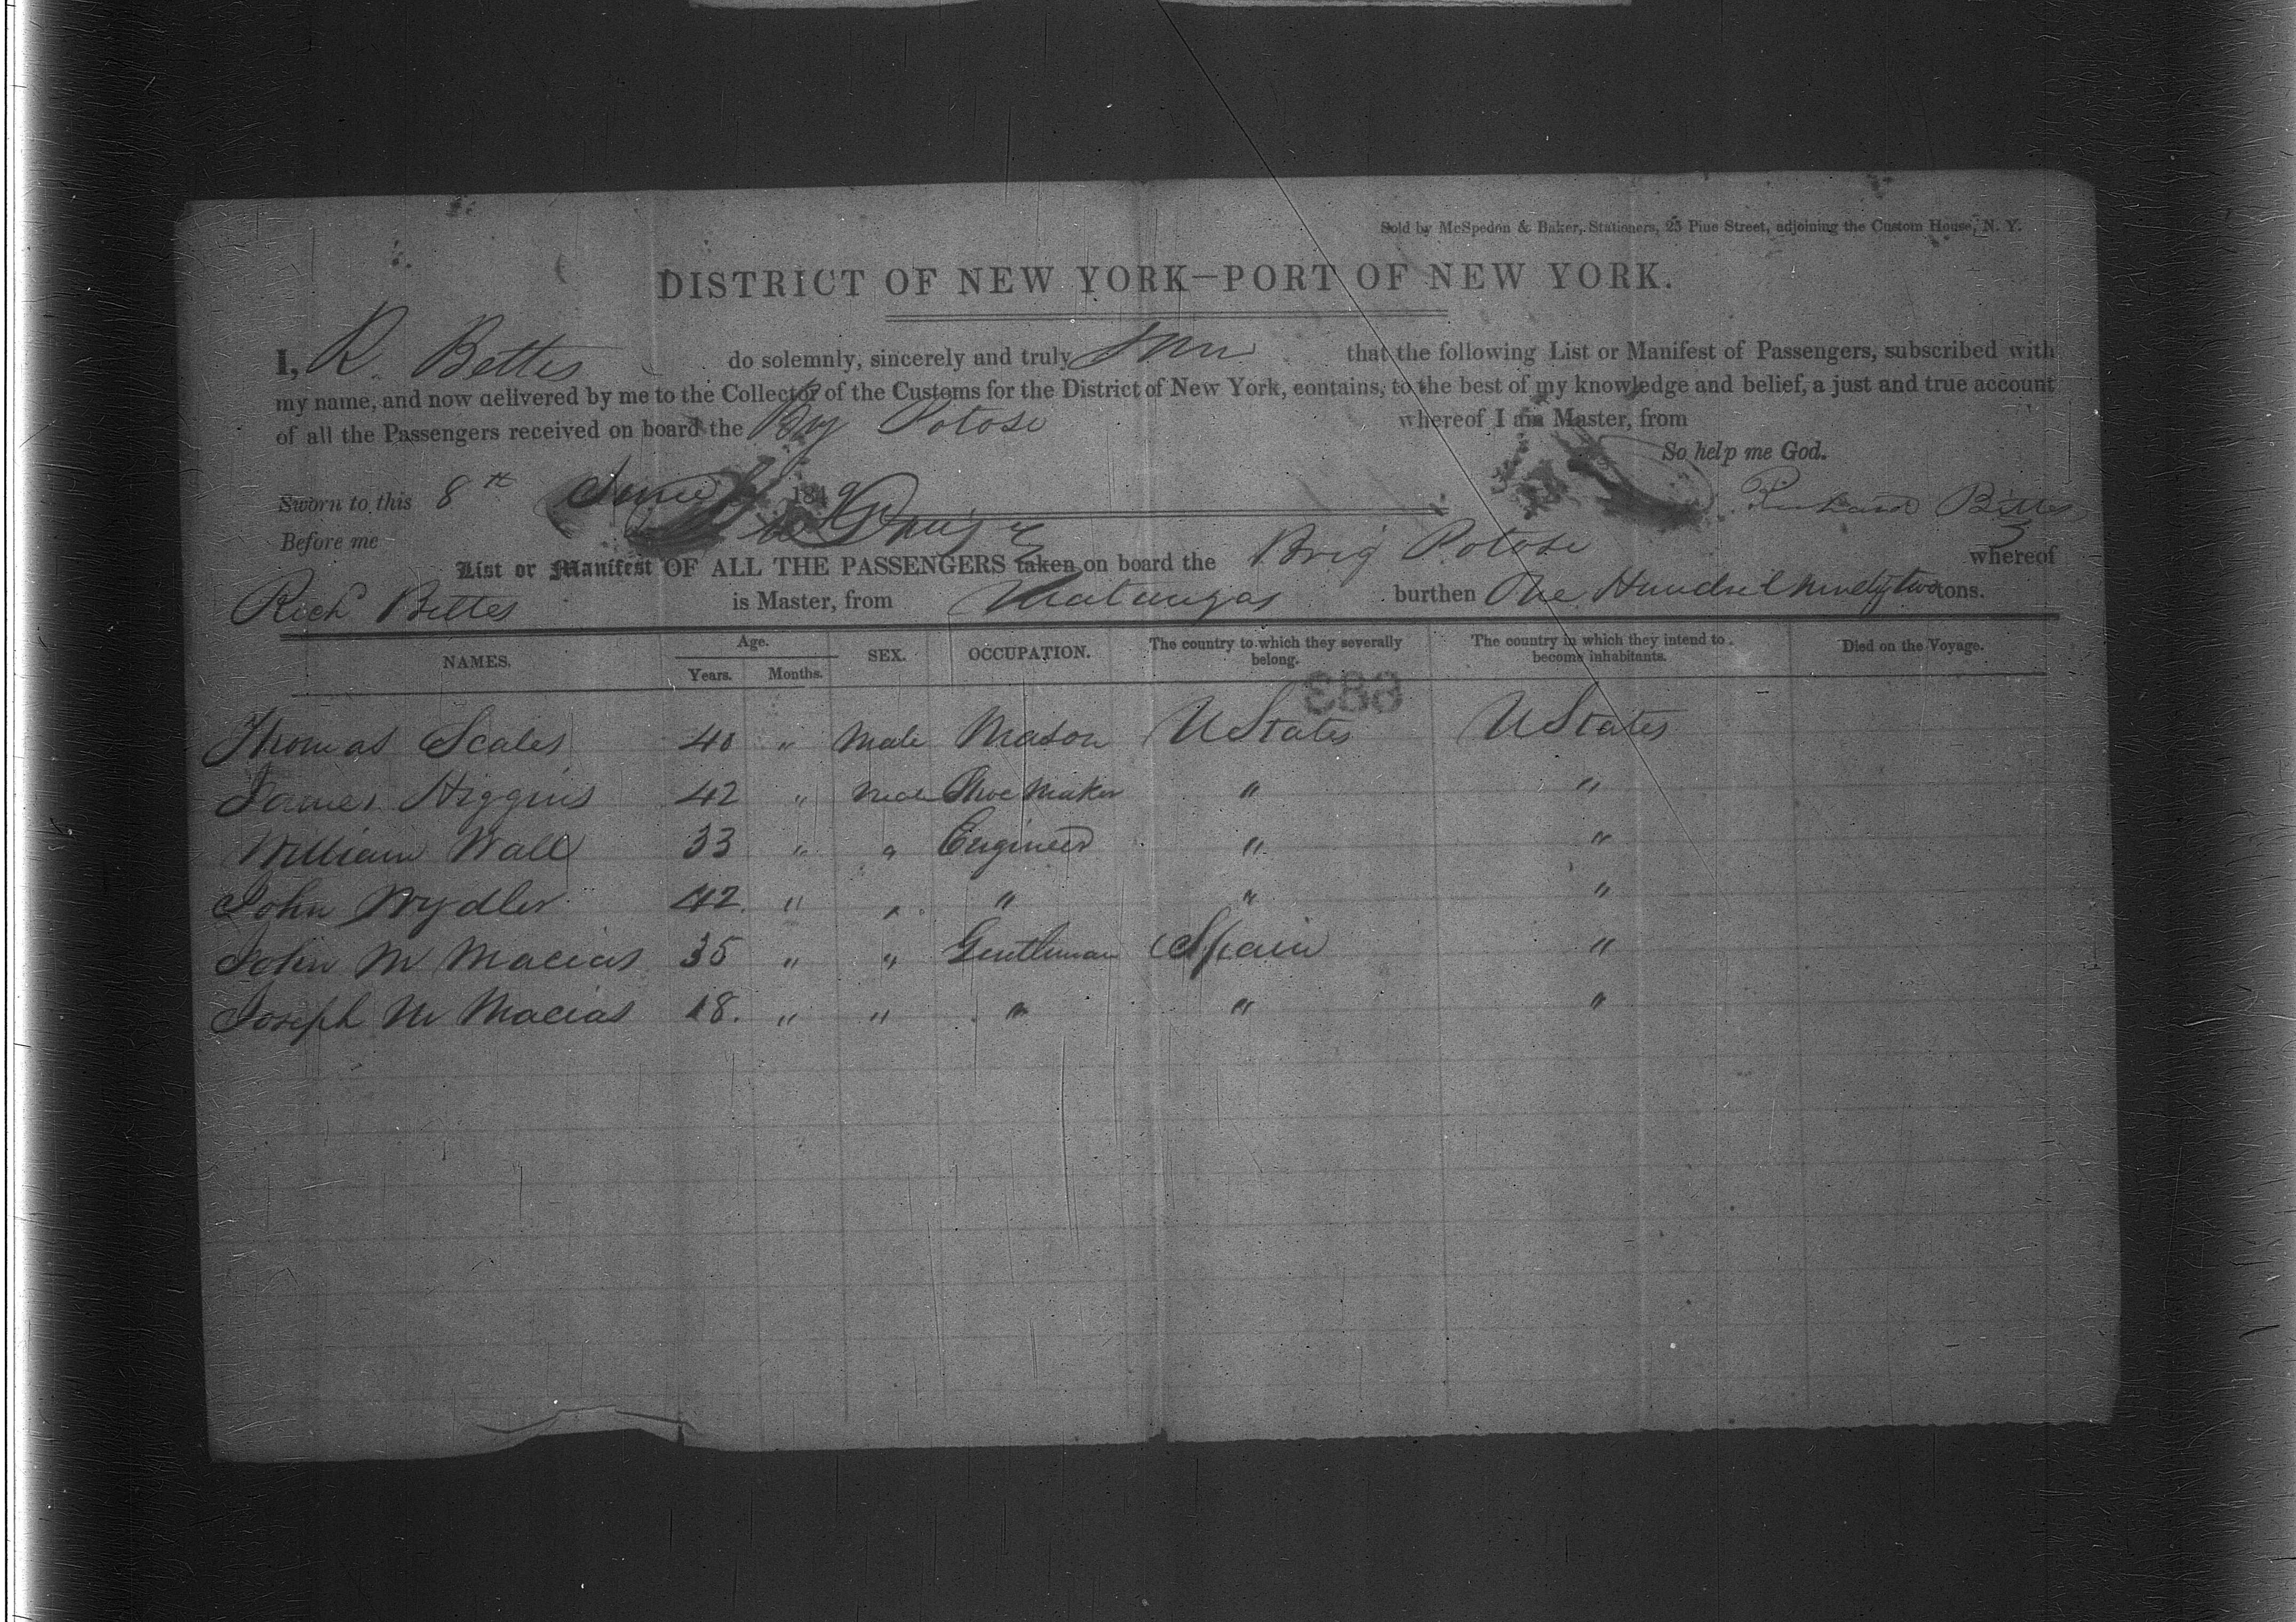 Sold by McSpedon & Baker, Stationers, 25 Pine Street, adjoining the Custom House, N. Y.
DISTRICT OF NEW YORK—PORT OF NEW YORK.
I, R. Bettes do solemnly, sincerely and truly that the following List or Manifest of Passengers, subscribed with
my name, and now delivered by me to the Collector of the Customs for the District of New York, contains, to the best of my knowledge and belief, a just and true account
of all the Passengers received on board the Brig Potosi whereof I am Master, from
So help me God.
Sworn to this 8th June 1849 Richard Bettes
Before me
List or Manifest OF ALL THE PASSENGERS taken on board the Brig Potosi whereof
Richd Bettes is Master, from Matanzas burthen One Hundred ninety two tons.
NAMES. Age. Years. Months. SEX. OCCUPATION. The country to which they severally belong. The country in which they intend to become inhabitants. Died on the Voyage.
683
Thomas Scales 40 " Male Mason U States U States
James Higgins 42 " Male Shoe Maker " "
William Wall 33 " " Engineer " "
John Wydler 42 " " " " "
John M Macias 35 " " Gentleman Spain "
Joseph M Macias 18. " " " " "